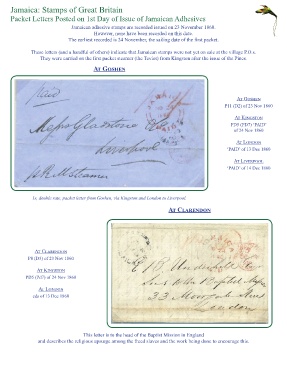 Jamaica: Stamps of Great Britain
Packet Letters Posted on 1st Day of Issue of Jamaican Adhesives
Jamaica adhesive stamps are recorded issued on 23 November 1860.
However, none have been recorded on this date.
The earliest recorded is 24 November, the sailing date of the first packet.
These letters (and a handful of others) indicate that Jamaican stamps were not yet on sale at the village P.O.s.
They were carried on the first packet steamer (the Tevior) from Kingston after the issue of the Pines
AT GOSHEN
Paid
Messrs Gladstone & Co
Liverpool
p R M Steamer
AT GOSHEN
P11 (D2) of 23 Nov 1860
AT KINGSTON
PD5 (PD7) 'PAID'
of 24 Nov 1860
AT LONDON
'PAID' of 13 Dec 1860
AT LIVERPOOL
'PAID' of 14 Dec 1860
1s. double rate, packet letter from Goshen, via Kingston and London to Liverpool
AT CLARENDON
AT CLARENDON
of 23 Nov 1860
AT KINGSTON
of 24 Nov 1860
AT LONDON
cds of 13 Dec 1860
E B Underhill Esq
33 Moorgate Street
London
This letter is to the head of the Baptist Mission in England
and describes the religious upsurge among the freed slaves and the work being done to encourage this.